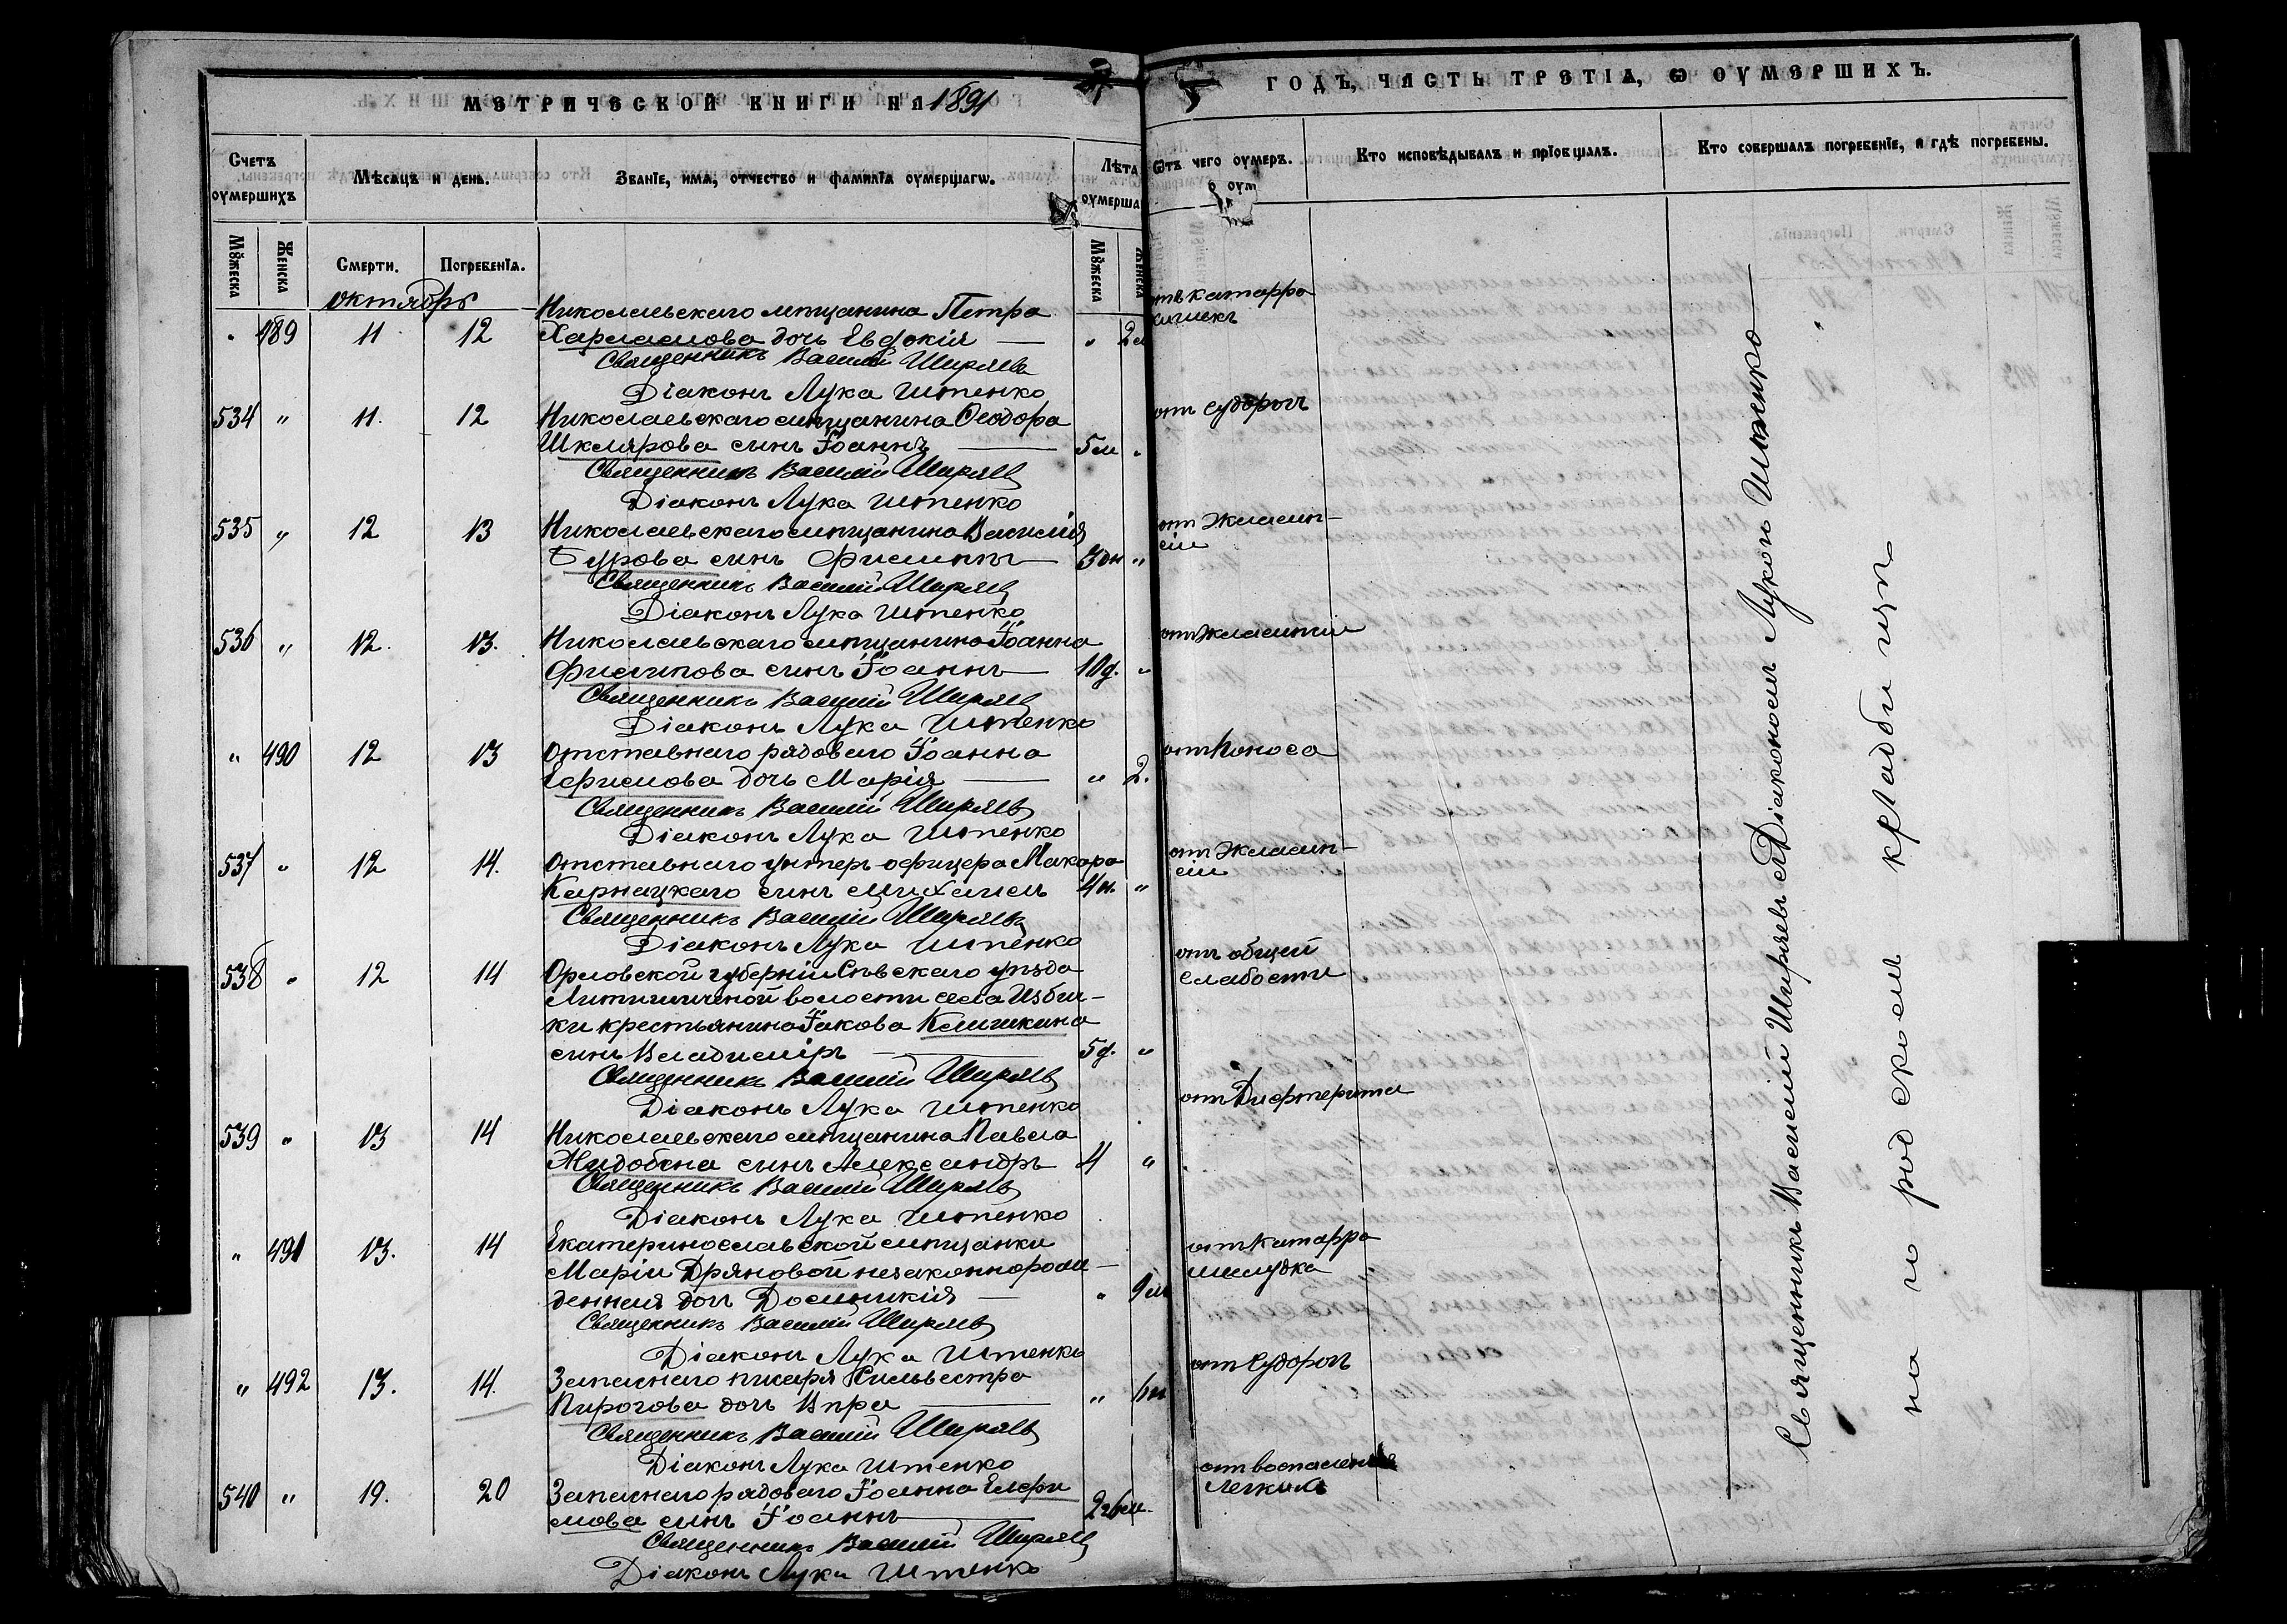 МЕТРИЧЕСКОЙ КНИГИ НА 1891
ГОДЪ, ЧАСТЬ ТРЕТІѦ, Ѡ ОУМЕРШИХЪ.
Счетъ оумершихъ
Мѣсѧцъ и день.
Званіе, имѧ, отчество и фамиліѧ оумершагѡ.
Лѣта оумерша
Ѿ чего оумеръ.
Кто исповѣдывалъ и пріобщалъ.
Кто совершалъ погребеніе, и гдѣ погребены.
Мꙋжеска
Женска
Смерти.
Погребеніѧ.
Мꙋжеска
Женска
октябрь
Николаевскаго мѣщанина Петра
" 489 11 12 Харламова дочь Евдокія — " 2
отъ катарра
кишекъ
Священникъ Василій Ширяевъ
Діаконъ Лука Штенко
534 " 11. 12 Николаевскаго мѣщанина Ѳеодора
Шклярова сынъ Іоаннъ — 5 м "
отъ судорогъ
Священникъ Василій Ширяевъ
Діаконъ Лука Штенко
535 " 12 13 Николаевскаго мѣщанина Василія
Бурова сынъ Филиппъ — 3 дн "
отъ Эклямп-
сіи
Священникъ Василій Ширяевъ
Діаконъ Лука Штенко
536 " 12. 13. Николаевскаго мѣщанина Іоанна
Филипова сынъ Іоаннъ — 10 д. "
Священникъ Василій Ширяевъ
Діаконъ Лука Штенко
" 490 12 13 Отставнаго рядоваго Іоанна
дочь Марія — " 2.
отъ Поноса
Священникъ Василій Ширяевъ
Діаконъ Лука Штенко
537 " 12 14. Отставнаго унтеръ-офицера Макара
Карнацкаго сынъ Михаилъ "
отъ Эклямп-
сіи
Священникъ Василій Ширяевъ
Діаконъ Лука Штенко
538 " 12 14 Орловской губерніи Сѣвскаго уѣзда
волости села Избич-
ки крестьянина Іакова
сынъ Владиміръ — 5 д. "
отъ общей
слабости
Священникъ Василій Ширяевъ
Діаконъ Лука Штенко
539 " 13 14 Николаевскаго мѣщанина Павла
сынъ Александръ 4 "
отъ Дифтерита
Священникъ Василій Ширяевъ
Діаконъ Лука Штенко
" 491 13. 14 Екатеринославской мѣщанки
Маріи Дряновой незаконнорож-
денная дочь Домникія — " 9 м
отъ Катарра
желудка
Священникъ Василій Ширяевъ
Діаконъ Лука Штенко
" 492 13. 14. Запаснаго писаря Сильвестра
Пирогова дочь Вѣра — "
отъ Судорогъ
Священникъ Василій Ширяевъ
Діаконъ Лука Штенко
540 " 19. 20 Запаснаго рядоваго Іоанна Елефи
мова сынъ Іоаннъ — 2 г 6 м
отъ воспаленія
легкихъ
Священникъ Василій Ширяевъ
Діаконъ Лука Штенко
Священникъ Василій Ширяевъ съ Діакономъ Лукою Штенко
на городскомъ кладбищѣ